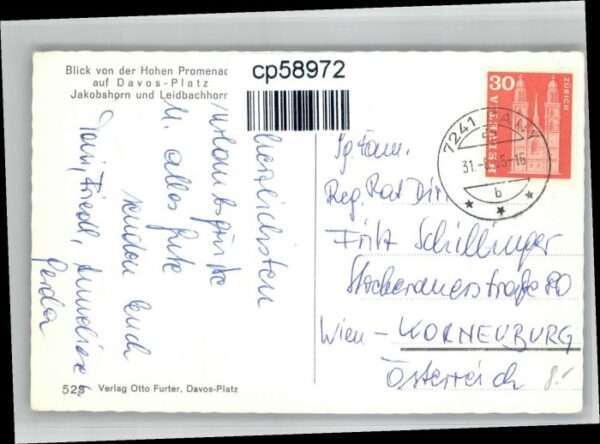 Blick von der Hohen Promenad
auf Davos-Platz
Jakobshorn und Leidbachhorn
cp58972
30
HELVETIA
ZÜRICH
7241
31.
-16
b
herzlichsten
Urlaubsgrüße
u. alles Gute
senden Euch
Friedl, Anneliese
Gerda
Fritz Schillinger
Stockerauerstraße 80
Wien - KORNEUBURG
Österreich
8.-
528 Verlag Otto Furter, Davos-Platz